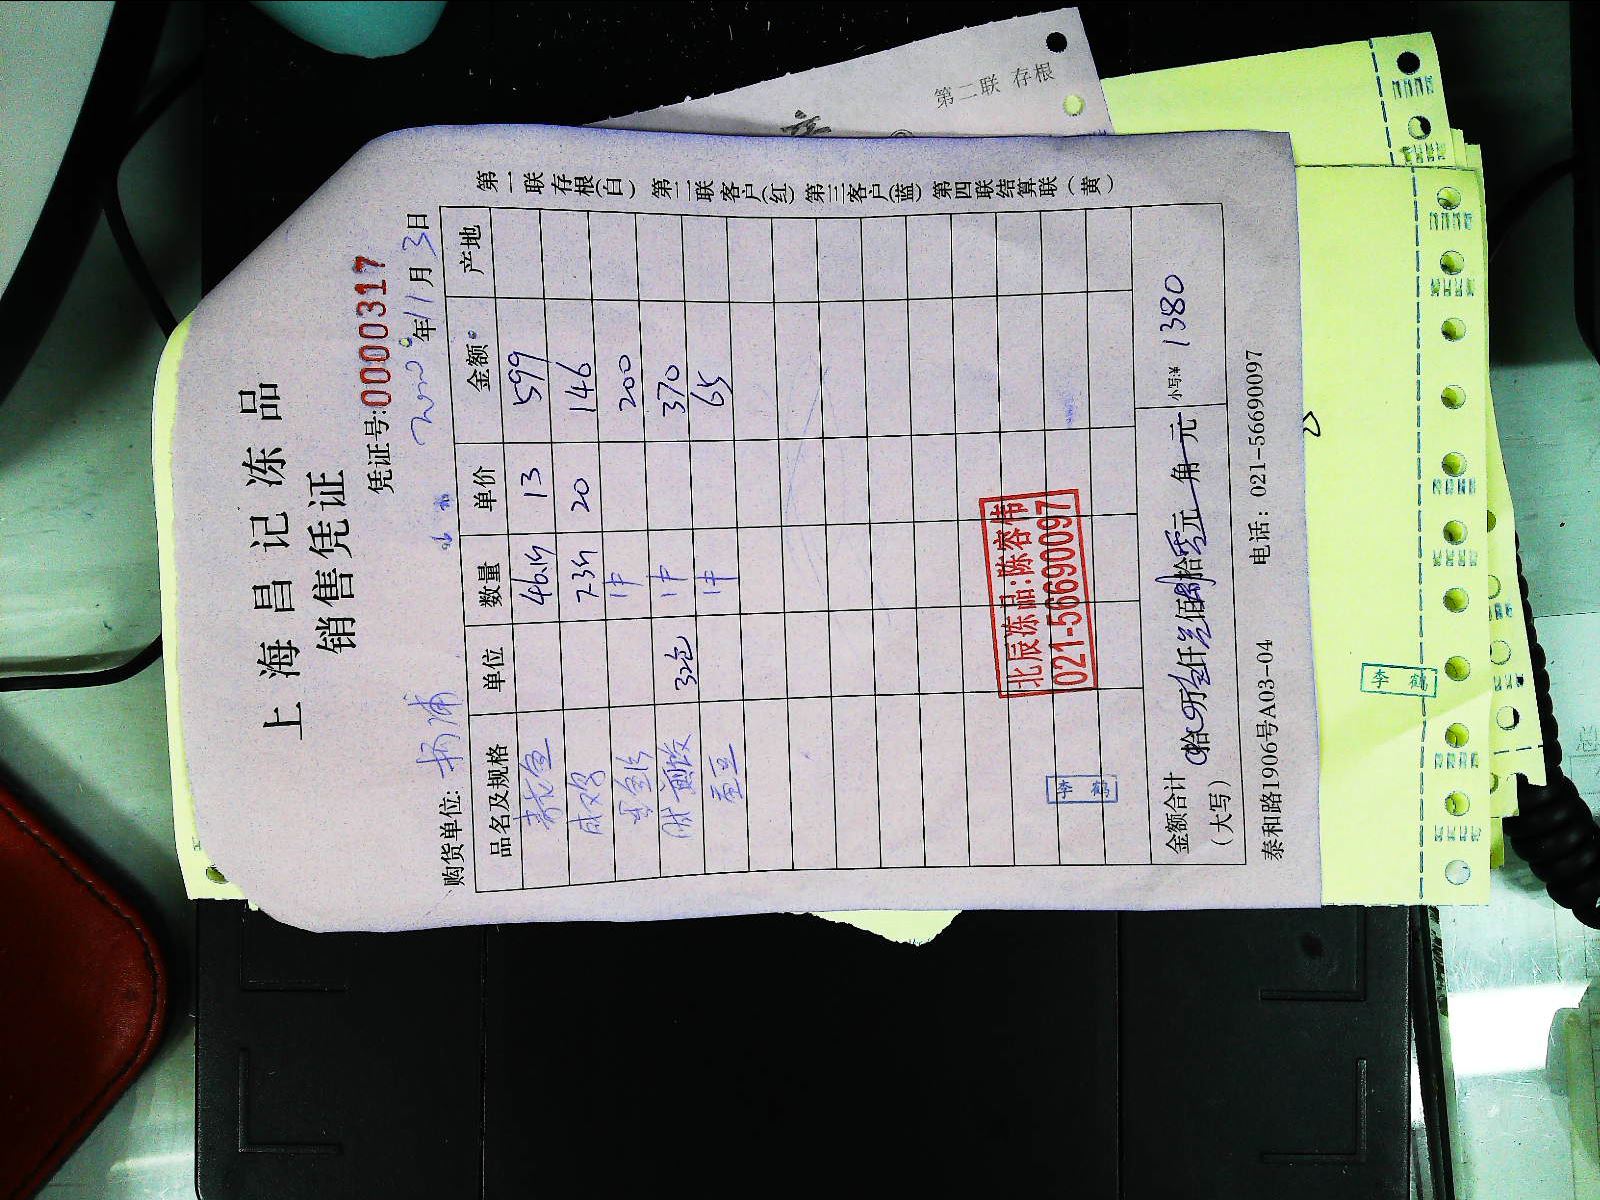 第二联 存根
上海昌记冻品
销售凭证
凭证号:0000317
购货单位: 杨浦 年11月3日
品名及规格 单位 数量 单价 金额 产地
46.1斤 13 599
7.3斤 20 146
1件 200
32包 1件 370
蚕豆 1件 65
第一联存根(白) 第二联客户(红) 第三客户(蓝) 第四联结算联(黄)
北辰冻品:陈容伟
021-56690097
李鹤
金额合计 拾万仟佰拾零元角元 小写:¥ 1380
(大写)
泰和路1906号A03-04 电话: 021-56690097
李鹤